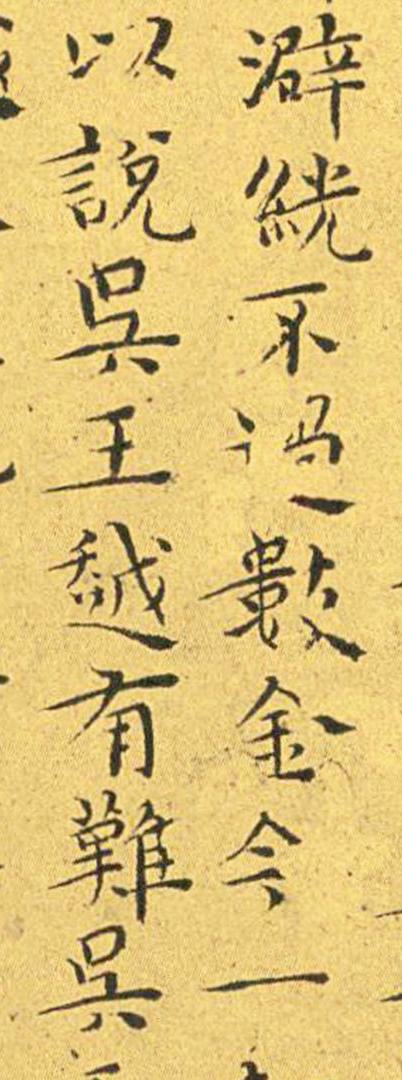 澼絖不過數金今一
以說吳王越有難吳